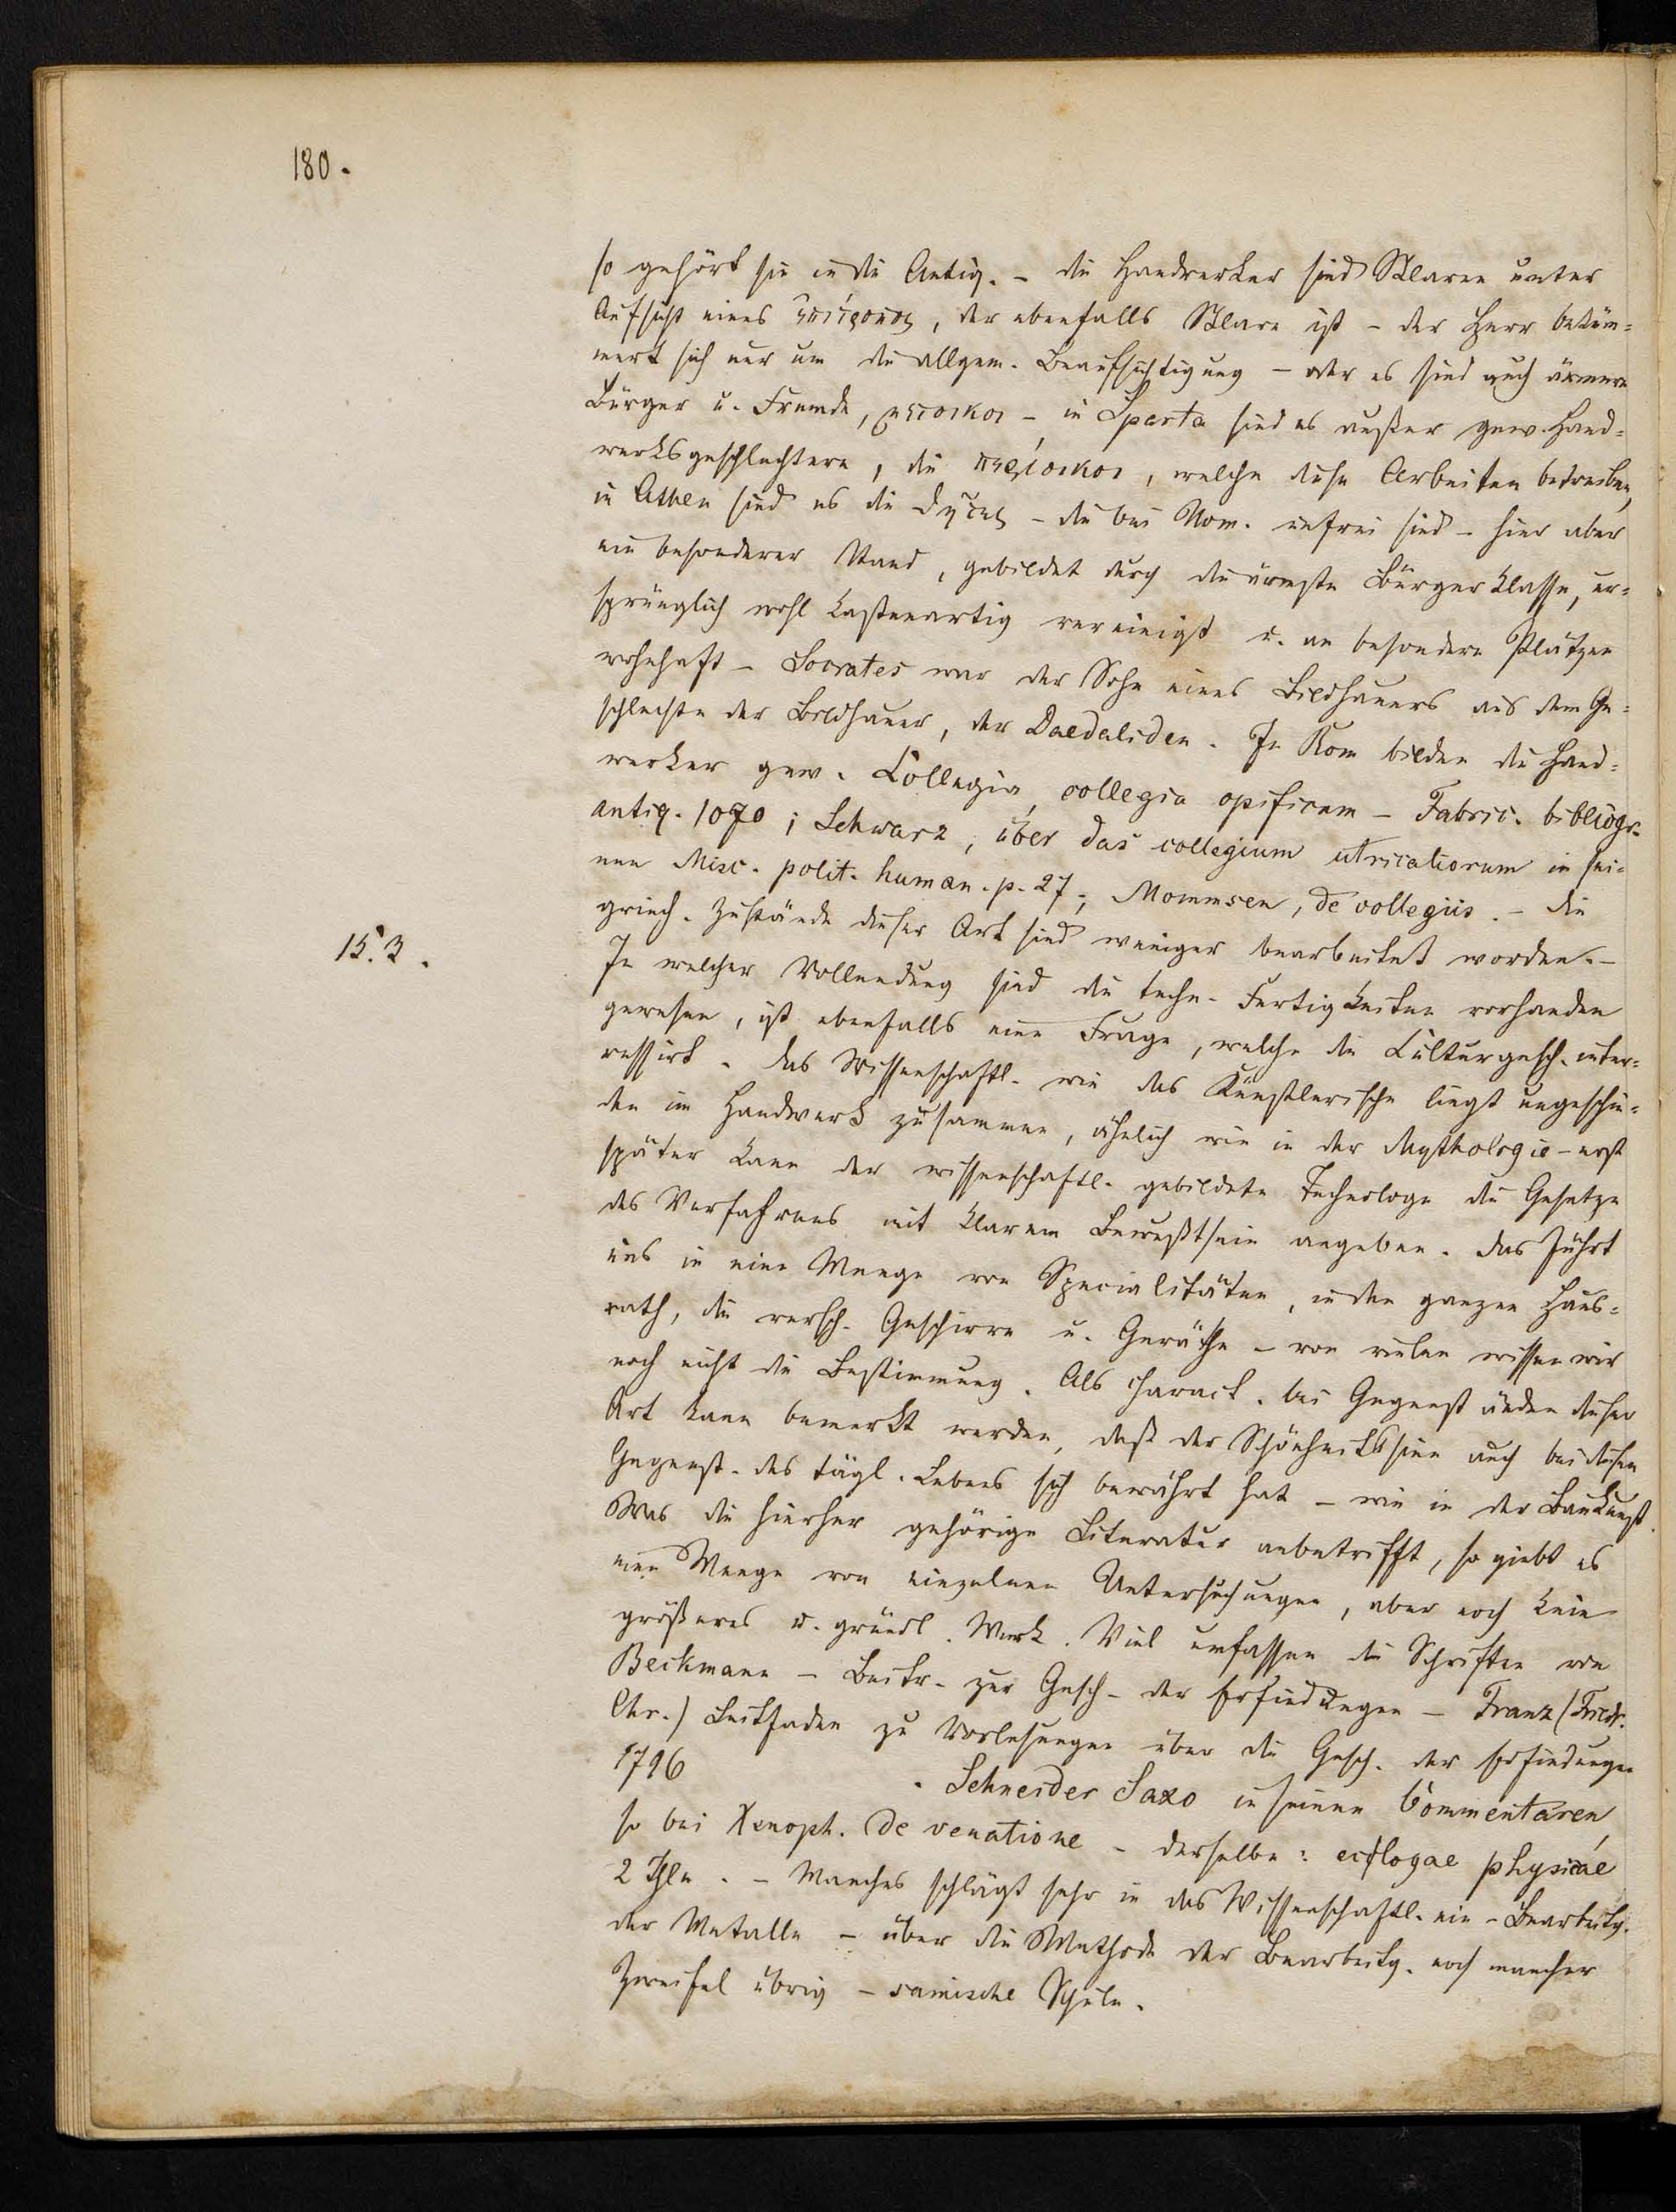 180.
so gehört sie in die Antiq. - die Handwerker sind Sklaven unter
Aufsicht eines ἐπίτροπος, der ebenfalls Sklave ist - der Herr beküm=
mert sich nur um die allgem. Beaufsichtigung - oder es sind auch ärmere
Bürger u. Fremde, μετοικοι - in Sparta sind es außer gew. Hand=
werksgeschlechtern, die περίοικοι, welche diese Arbeiten betreiben,
in Athen sind es die θῆτες - die bei Hom. unfrei sind - hier aber
ein besonderer Stand, gebildet durch die ärmste Bürgerklasse, ur=
sprünglich wohl kastenartig vereinigt u. an besondern Plätzen
wohnhaft - Socrates war der Sohn eines Bildhauers aus dem Ge=
schlechte der Bildhauer, der Daedaliden. In Rom bilden die Hand=
werker gew. Collegia, collegia opificum - Fabric. bibliogr.
antiq. 1070; Schwarz, über das collegium utriculariorum in sei=
nen Misc. polit. human. p. 27; Mommsen, de collegiis. - die
griech. Zustände dieser Art sind weniger bearbeitet worden. -
15.3.
In welcher Vollendung sind die techn. Fertigkeiten vorhanden
gewesen, ist ebenfalls eine Frage, welche die Culturgesch. inter=
ressirt. das Wissenschaftl. wie das Künstlerische liegt ungeschie=
den im Handwerk zusammen, ähnlich wie in der Mythologie - erst
später kann der wissenschaftl. gebildete Technologe die Gesetze
des Verfahrens mit klarem Bewußtsein angeben. das führt
uns in eine Menge von Specialitäten, in den ganzen Haus=
rath, die versch. Geschirre u. Geräthe - von vielen wissen wir
noch nicht die Bestimmung. Als charact. bei Gegenständen dieser
Art kann bemerkt werden, daß der Schönheitssinn auch bei diesen
Gegenst. des tägl. Lebens sich bewährt hat - wie in der Baukunst.
Was die hierher gehörige Literatur anbetrifft, so giebt es
eine Menge von einzelnen Untersuchungen, aber noch kein
größeres u. gründl. Werk. Viel umfassen die Schriften von
Beckmann - Beitr. zur Gesch. der Erfindungen - Franz (Friedr.
Chr.) Leitfaden zu Vorlesungen über die Gesch. der Erfindungen
1796 . Schneider Saxo in seinen Commentaren,
so bei Xenoph. de venatione - derselbe: eclogae physicae
2 Thle. - Manches schlägt sehr in das Wissenschaftl. ein - Bearbeitg.
der Metalle - über die Methode der Bearbeitg. noch mancher
Zweifel übrig - samische Schule.